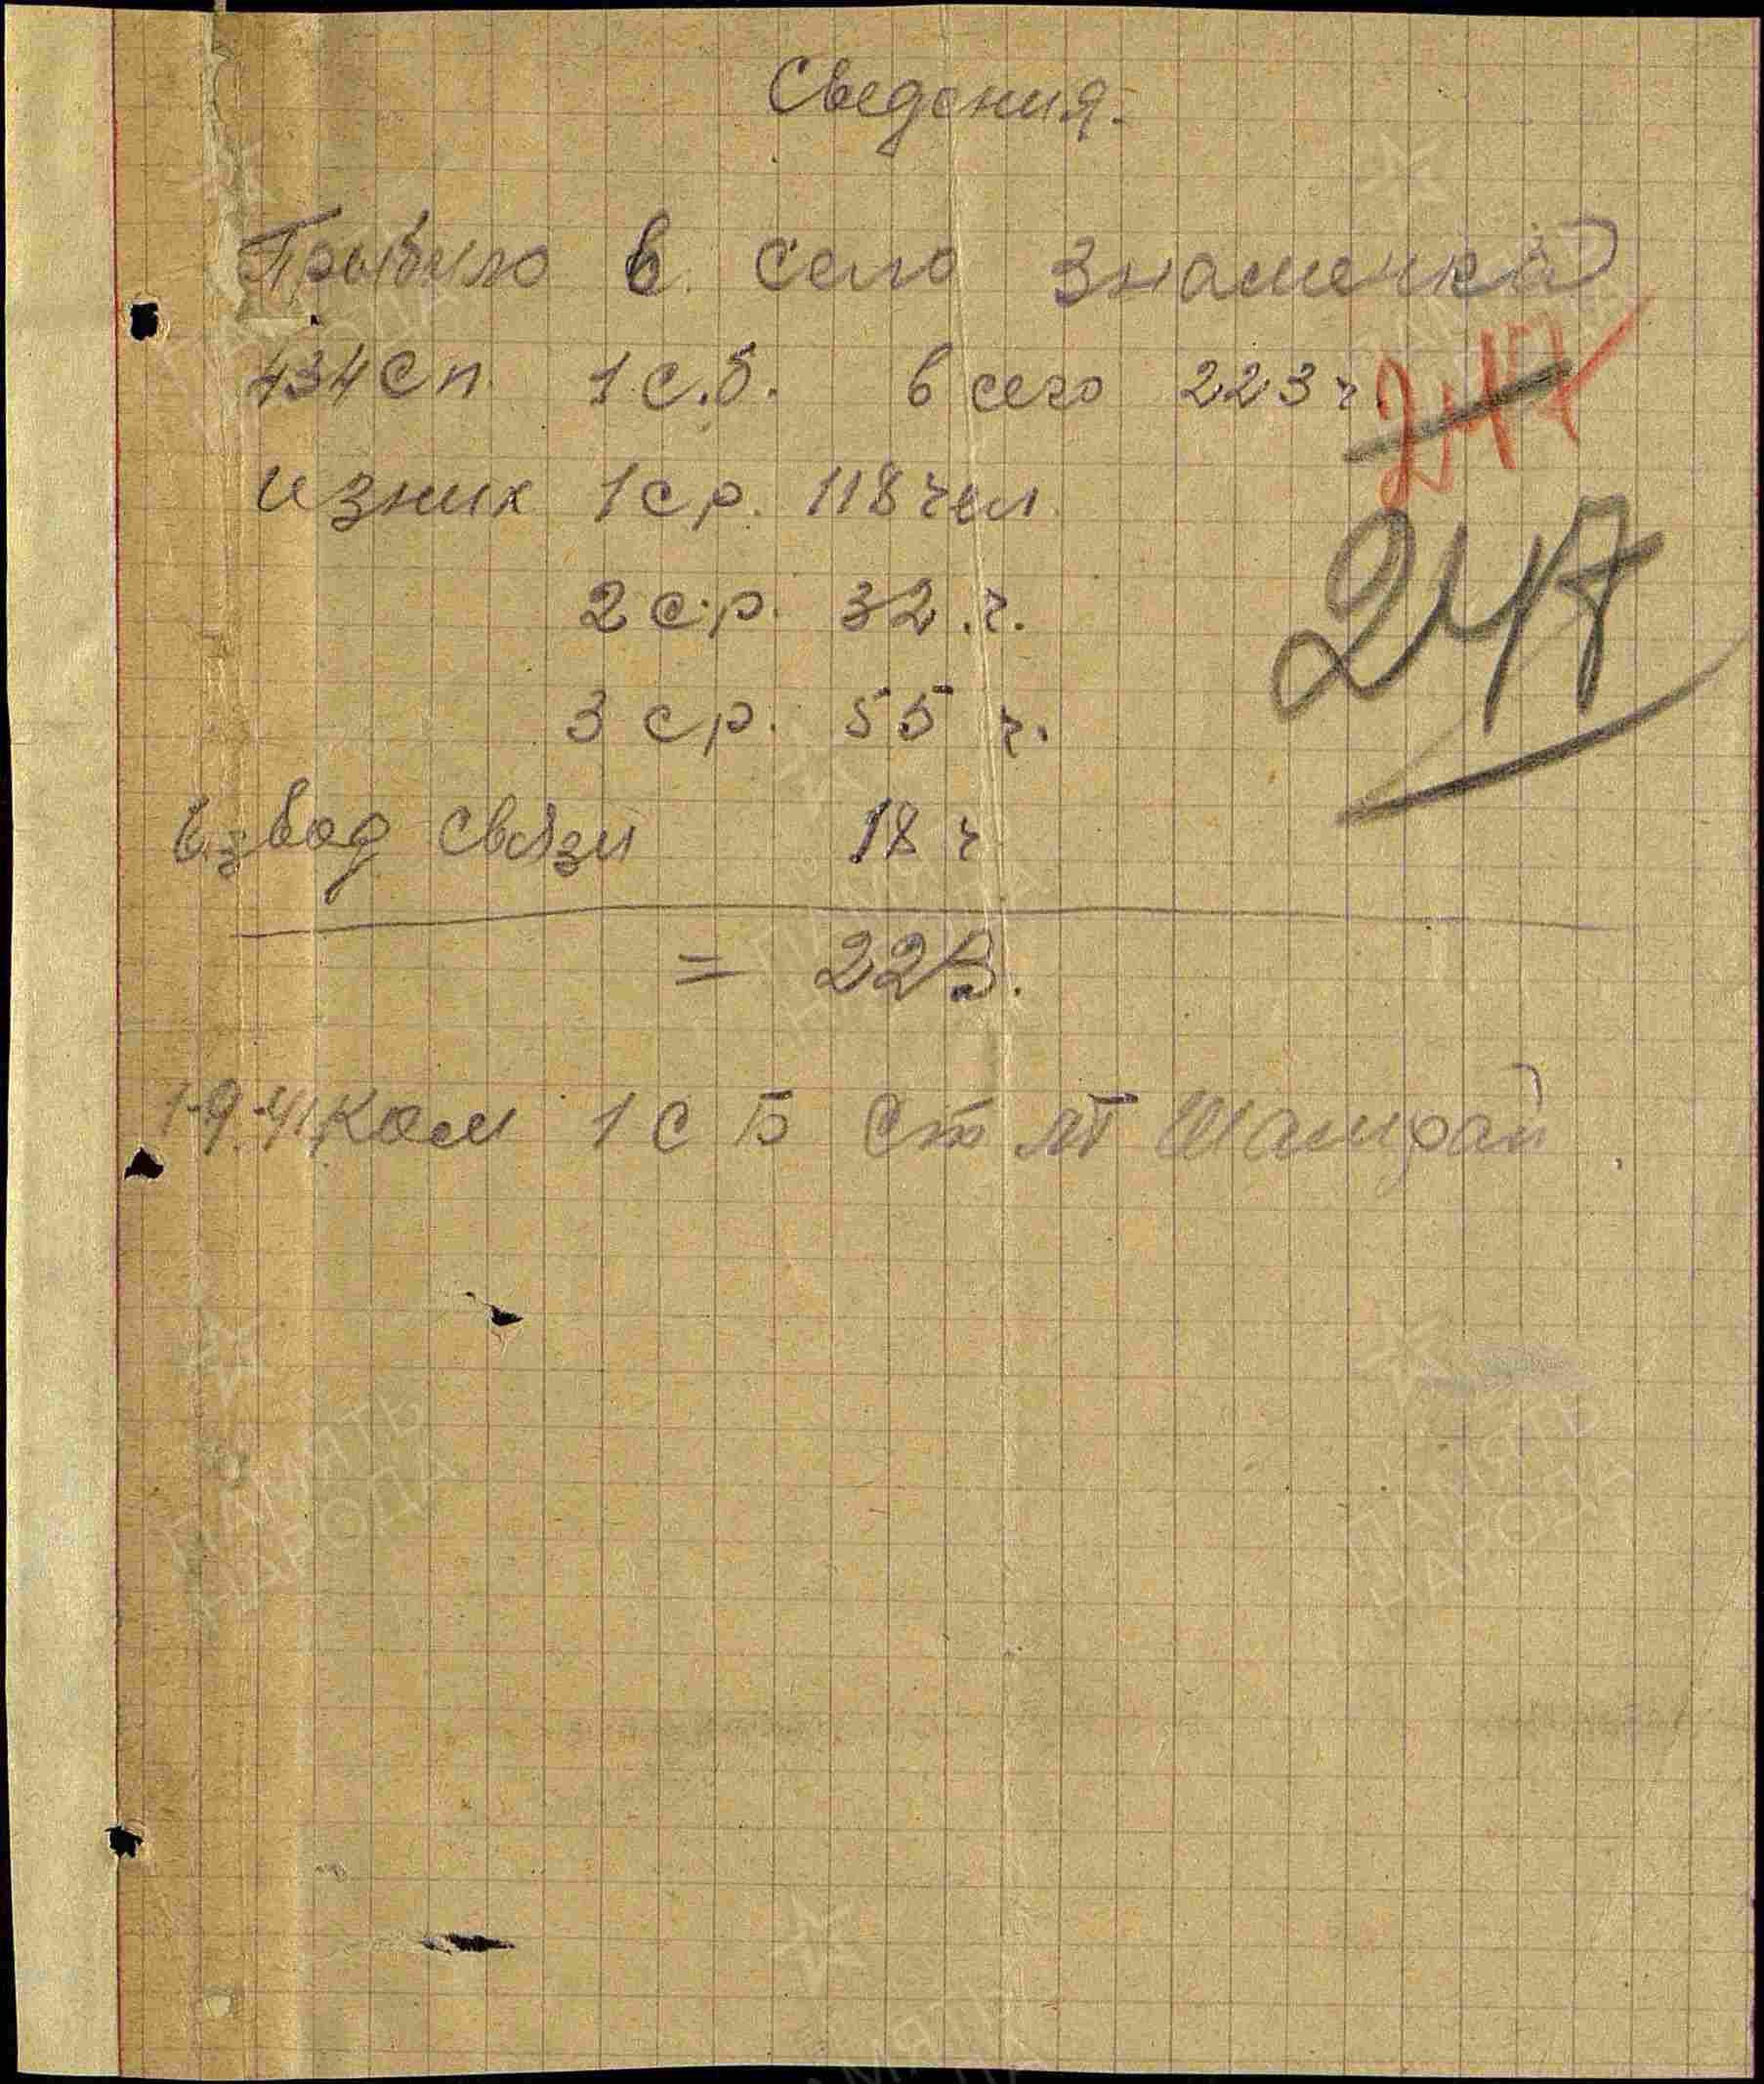 Сведения.
Прыбыло в село Знаменка
434 сп 1 с.б. всего 223 ч.
247
из них 1 ср. 118 чел.
247
2 ср. 32 ч.
3 ср. 55 ч.
взвод связи 18 ч
= 223.
1-9-41 Ком 1 С Б Ст лт Шамрай
ПАМЯТЬ НАРОДА